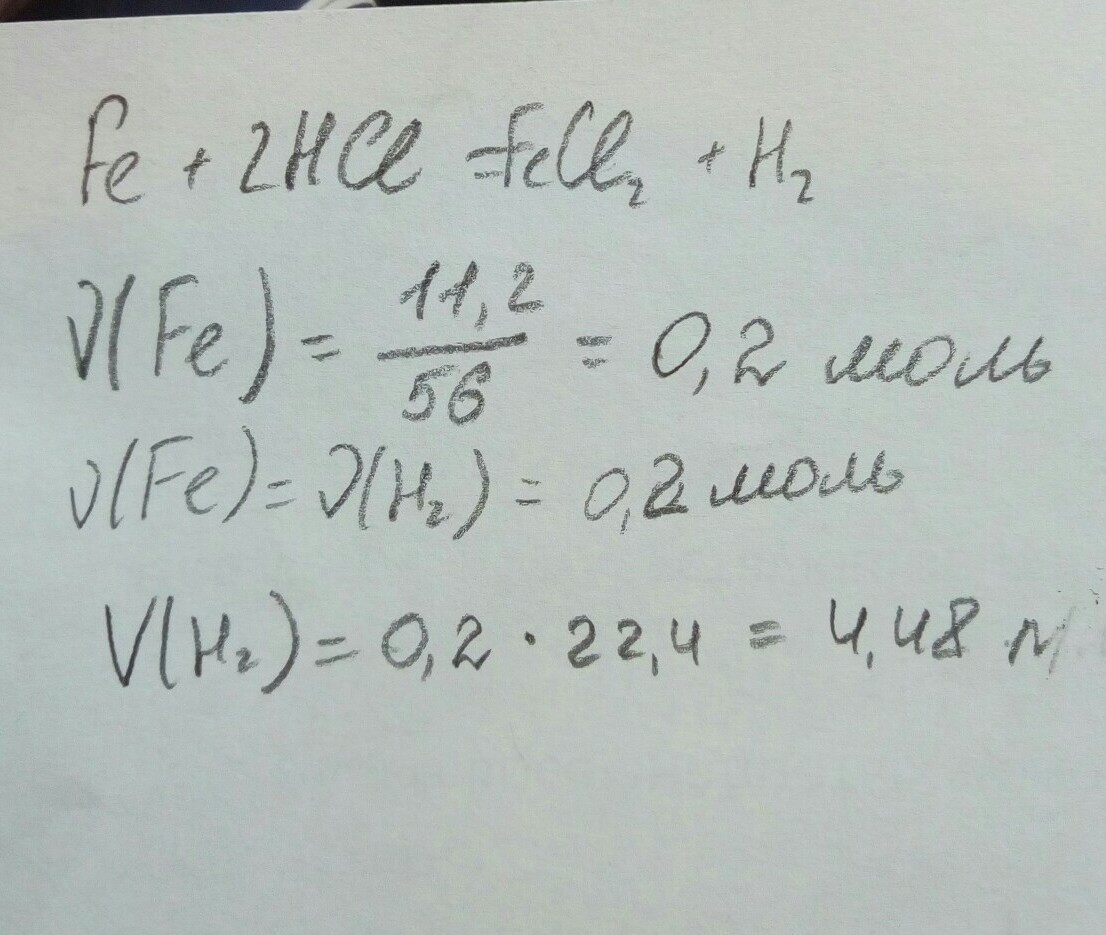 Fe + 2HCl = FeCl₂ + H₂
ν(Fe) = 11,2/56 = 0,2 моль
ν(Fe) = ν(H₂) = 0,2 моль
V(H₂) = 0,2 · 22,4 = 4,48 л